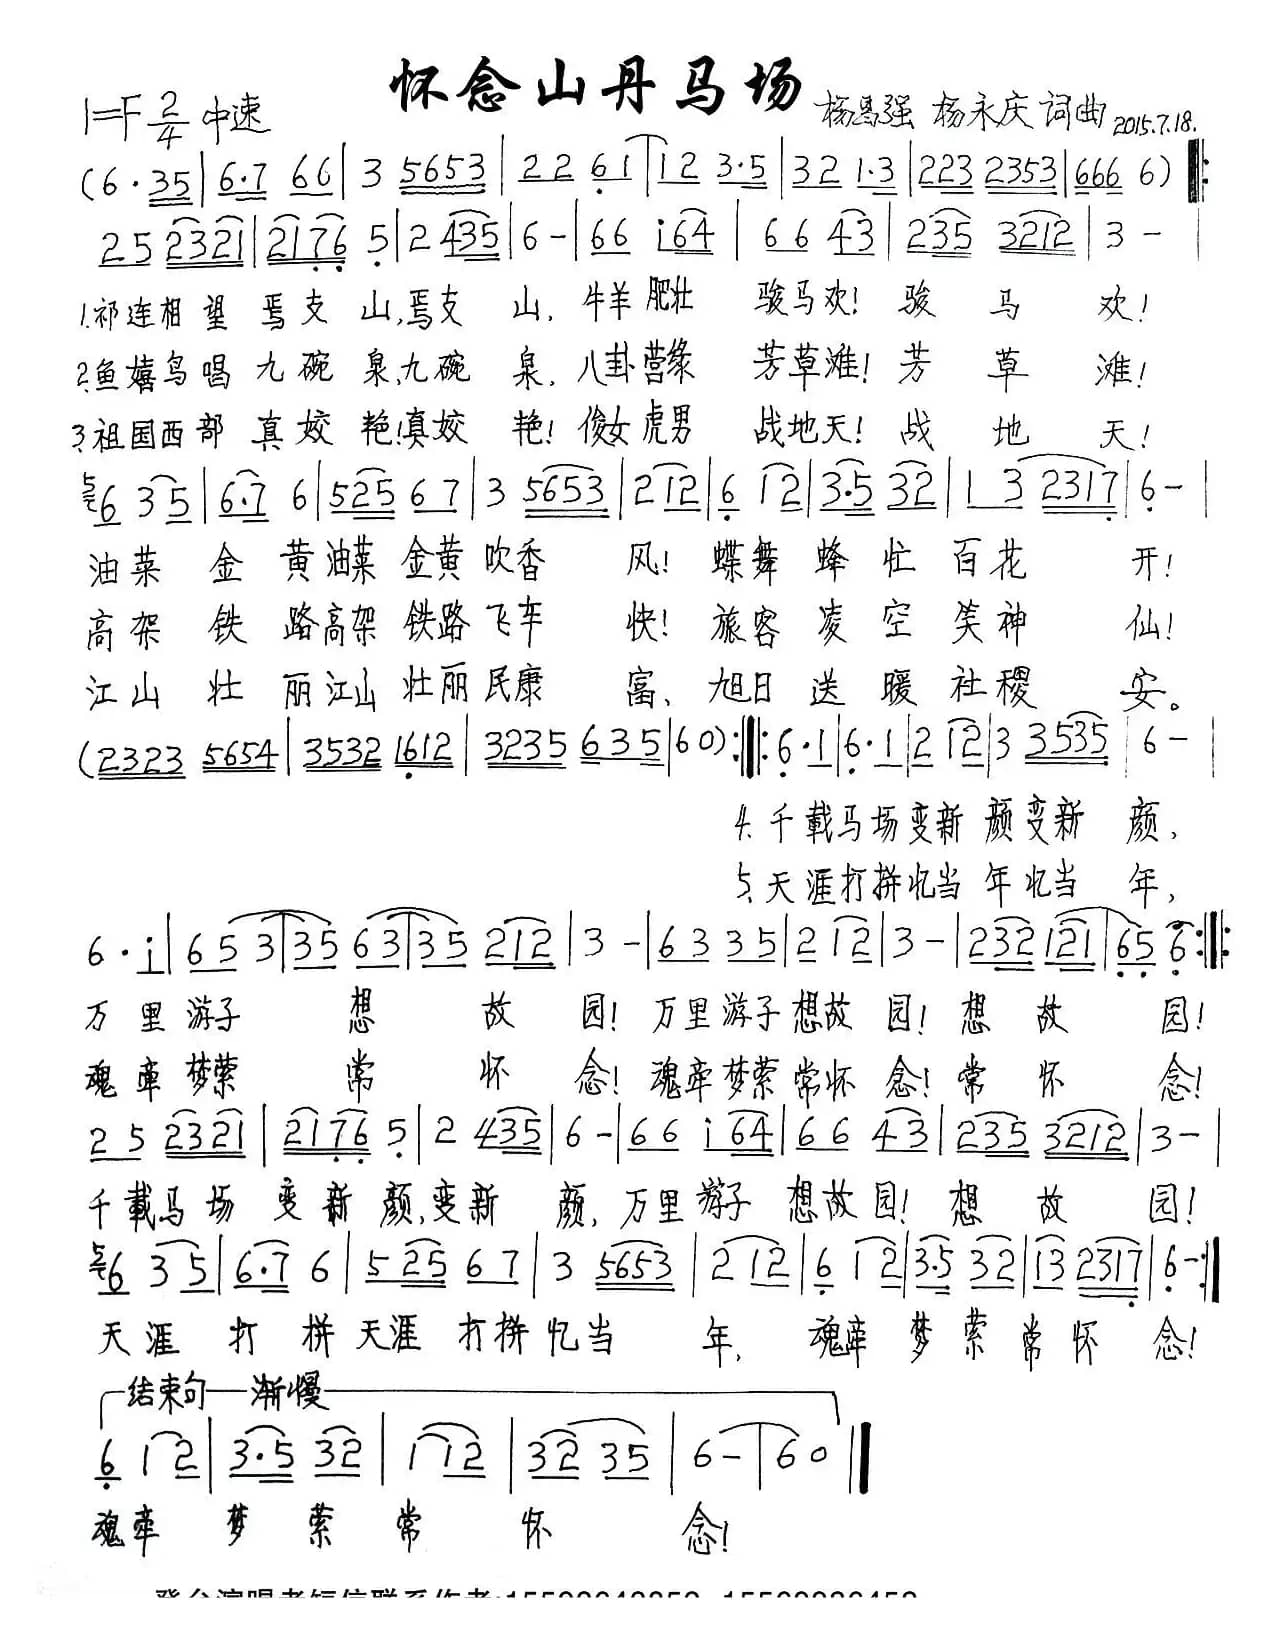 怀念山丹马场
1=F 2/4 中速 杨昌强 杨永庆 词曲 2015.7.18.
(6·35|6·7 66|3 5653|22 61|12 3·5|32 1·3|223 2353|666 6)‖:
25 2321|2176 5|2 435|6-|66 i64|66 43|235 3212|3-|
1.祁连相望焉支山,焉支山,牛羊肥壮骏马欢!骏马欢!
2.鱼嬉鸟唱九碗泉,九碗泉,八卦营缘芳草滩!芳草滩!
3.祖国西部真姣艳!真姣艳!俊女虎男战地天!战地天!
6 35|6·7 6|525 67|3 5653|2 12|6 12|3·5 32|13 2317|6-|
油菜金黄油菜金黄吹香风!蝶舞蜂忙百花开!
高架铁路高架铁路飞车快!旅客凌空笑神仙!
江山壮丽江山壮丽民康富、旭日送暖社稷安。
(2323 5654|3532 1612|3235 635|60):‖:6·1|6·1|2 12|3 3535|6-|
4.千载马场变新颜变新颜,
5.天涯打拼忆当年忆当年,
6·i|65 3|35 63|35 212|3-|63 35|2 12|3-|232 121|65 6:‖:
万里游子想故园!万里游子想故园!想故园!
魂牵梦萦常怀念!魂牵梦萦常怀念!常怀念!
25 2321|2176 5|2 435|6-|66 i64|66 43|235 3212|3-|
千载马场变新颜,变新颜,万里游子想故园!想故园!
6 35|6·7 6|525 67|3 5653|2 12|6 12|3·5 32|13 2317|6-:‖
天涯打拼天涯打拼忆当年,魂牵梦萦常怀念!
结束句 渐慢
6 12|3·5 32|1 12|32 35|6-|60‖
魂牵梦萦常怀念!